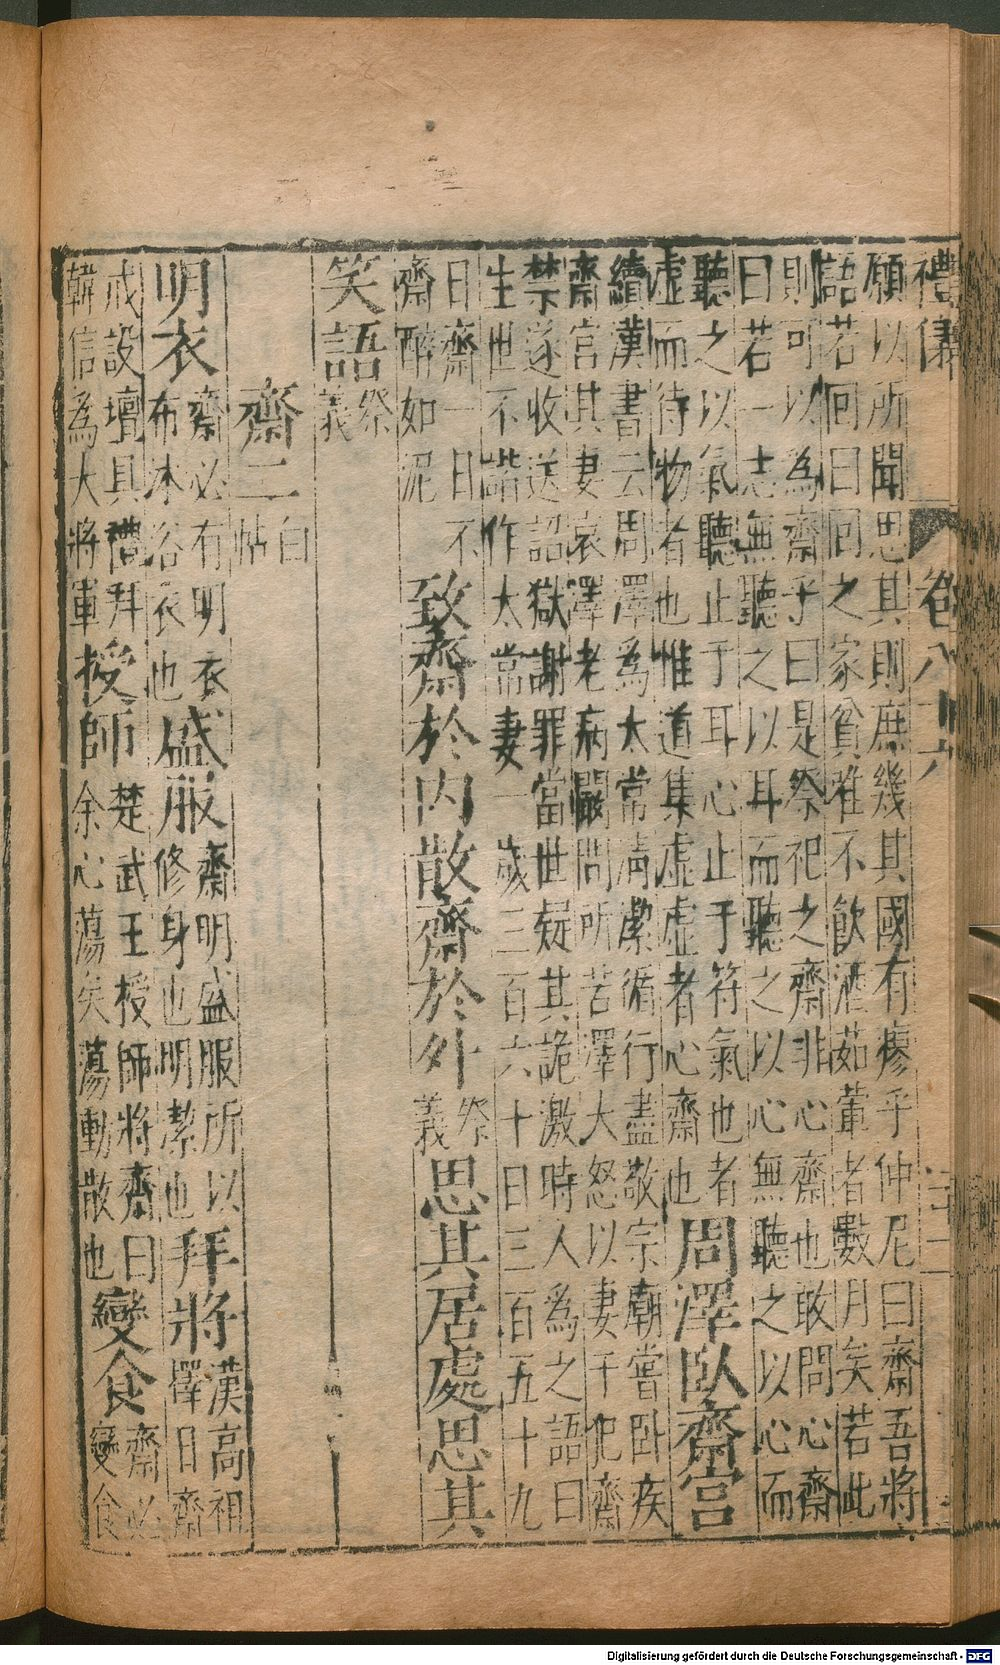 禮儀　卷八十六
願以所聞思其則庶幾其國有瘳乎仲尼曰齋吾將
語若回曰回之家貧唯不飲酒茹葷者數月矣若此
則可以為齋乎曰是祭祀之齋非心齋也敢問心齋
曰若一志無聽之以耳而聽之以心無聽之以心而
聽之以氣聽止于耳心止于符氣也者
虛而待物者也惟道集虛虛者心齋也
周澤臥齋宮
續漢書云周澤為太常清潔循行盡敬宗廟嘗臥疾
齋宮其妻哀澤老病闚問所苦澤大怒以妻干犯齋
禁遂收送詔獄謝罪當世疑其詭激時人為之語曰
生世不諧作太常妻一歲三百六十日三百五十九
日齋一日不
齋醉如泥
致齋於內散齋於外
祭義
思其居處思其
笑語
祭義
齋二
白帖
明衣
齋必有明衣
布沐浴衣也
盛服
齋明盛服所以
修身也明潔也
拜將
漢高祖
擇日齋
戒設壇具禮拜
韓信為大將軍
授師
楚武王授師將齊曰
余心蕩矣蕩動散也
變食
齋必
變食
Digitalisierung gefördert durch die Deutsche Forschungsgemeinschaft - DFG